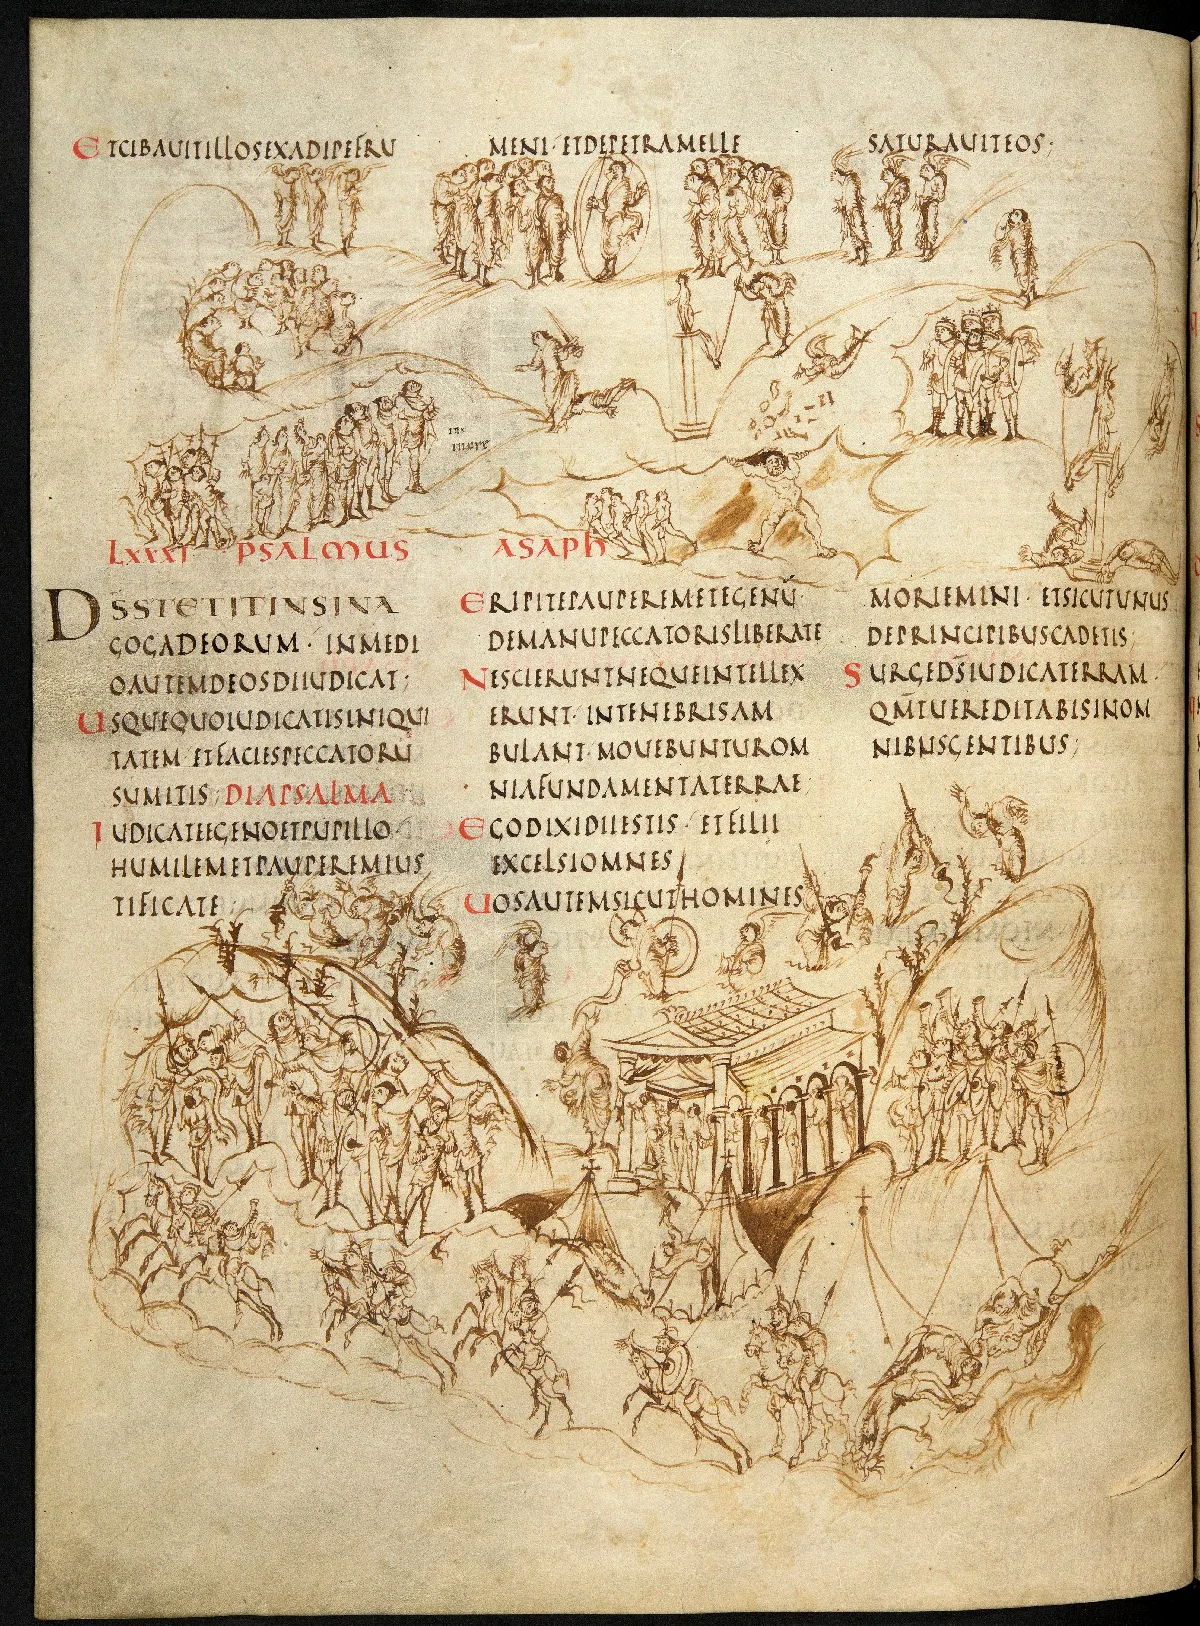 ETCIBAUITILLOSEXADIPEFRU
MENI· ETDEPETRAMELLE
SATURAUITEOS·
LXXXI PSALMUS ASAPH
DS̄STETITINSINA
GOGADEORUM· INMEDI
OAUTEMDEOSDIIUDICAT;
USQUEQUOIUDICATISINIQUI
TATEM· ETFACIESPECCATORU
SUMITIS; DIAPSALMA
IUDICATEEGENOETPUPILLO
HUMILEMETPAUPEREMIUS
TIFICATE
ERIPITEPAUPEREMETEGENŪ
DEMANUPECCATORISLIBERATE
NESCIERUNTNEQUEINTELLEX
ERUNT· INTENEBRISAM
BULANT· MOUEBUNTUROM
NIAFUNDAMENTATERRAE
EGODIXIDIIESTIS· ETFILII
EXCELSIOMNES
UOSAUTEMSICUTHOMINES
MORIEMINI· ETSICUTUNUS
DEPRINCIPIBUSCADETIS;
SURGEDS̄IUDICATERRAM·
QM̄TUEREDITABISINOM
NIBUSGENTIBUS;